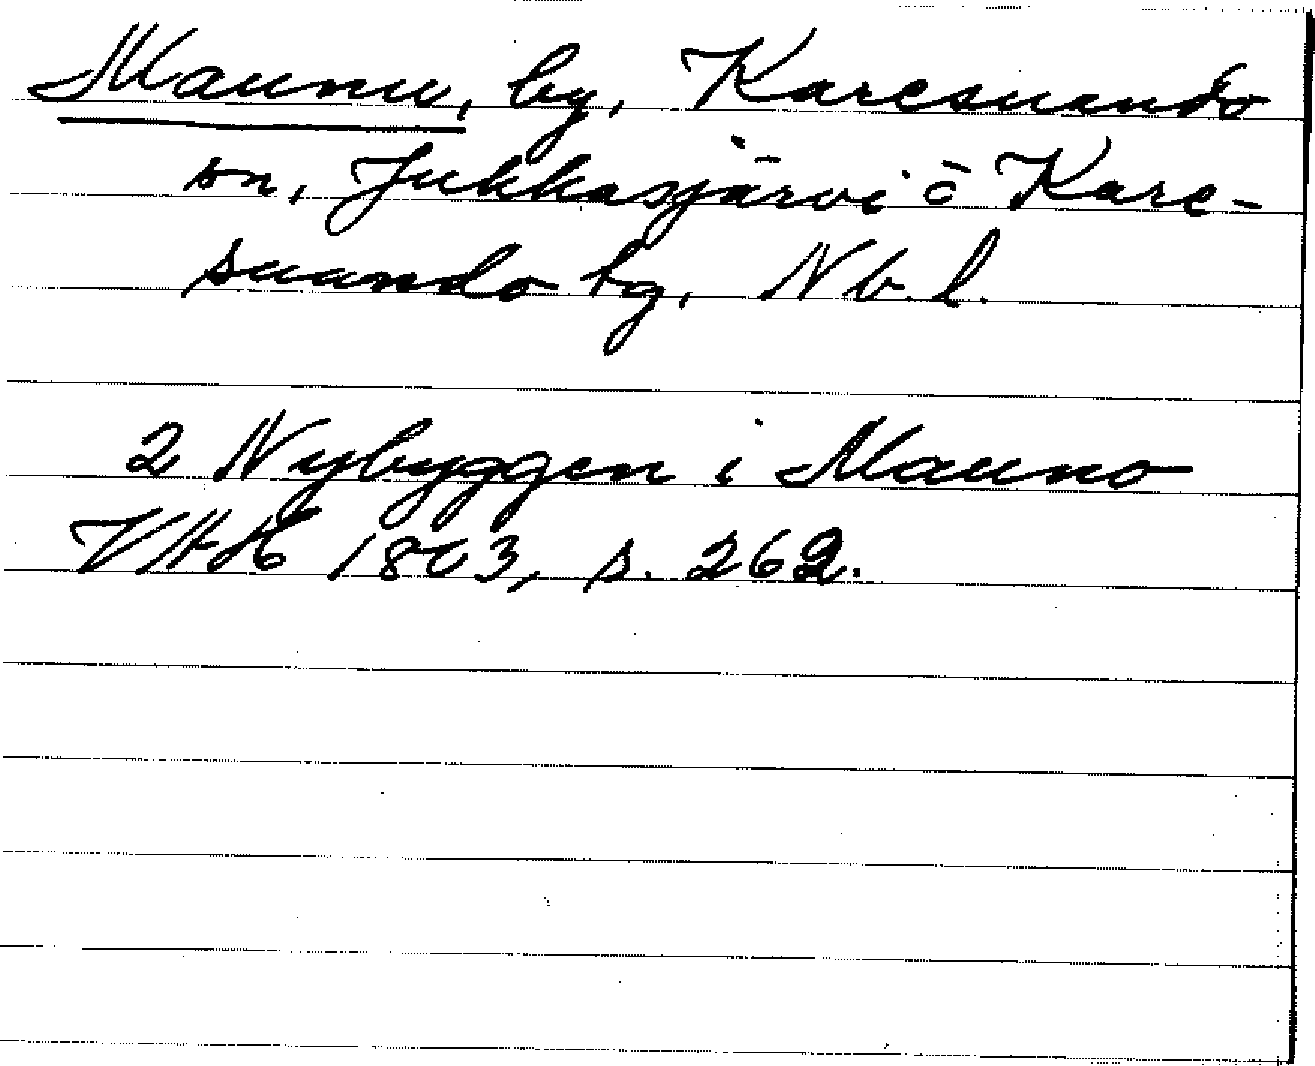 Maunu, by, Karesuando
sn, Jukkasjärvi o Kare-
suando tg, Nb. l.
2 Nybyggen i Mauno
1803, s. 262.